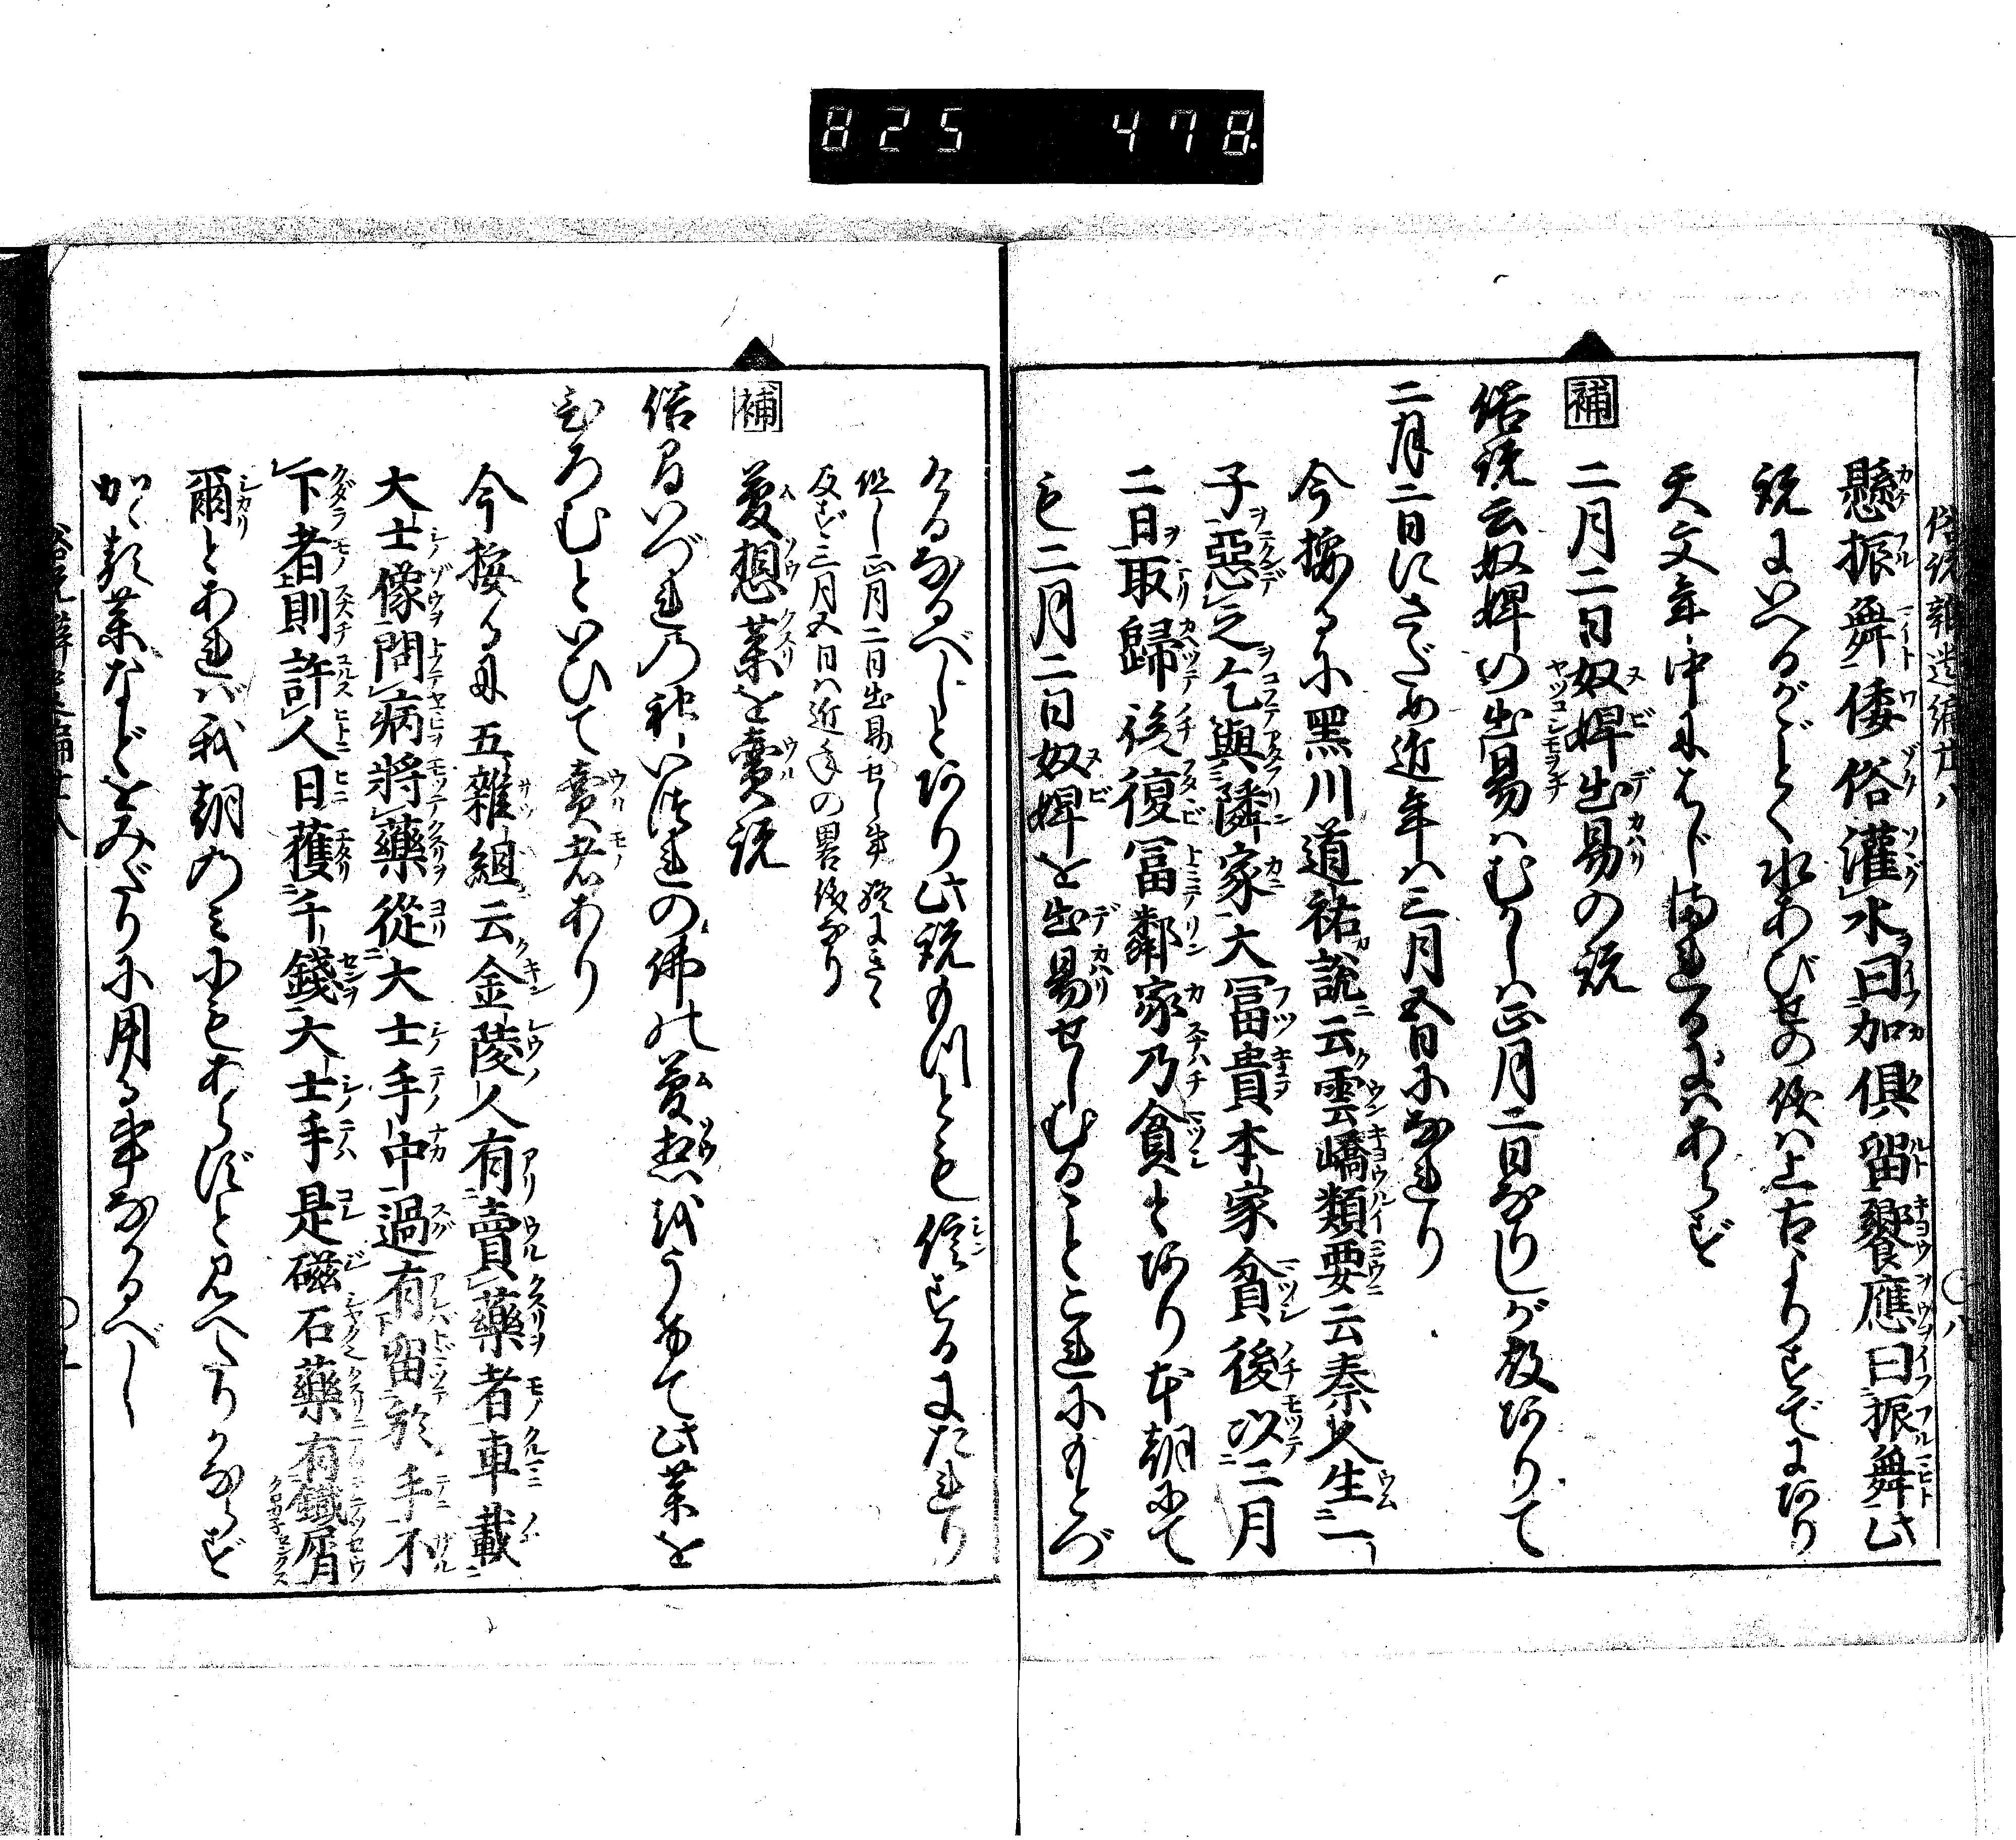 825 478
懸振舞倭俗灌水曰加俱留饗應曰振舞此
説にいへるがごとく水あびせの俗は上古よりすでにありて
天文年中にはじまれるにはあらず
補 二月二日奴婢出易の説
俗説云奴婢の出易はむかしは正月二日なりしが故ありて
二月二日にさだめ近年は三月五日になれり
今按るに黒川道祐説云雲嶠類要云秦人生一
子惡之乞與隣家大冨貴本家貧後以二月
二日取歸後復冨鄰家乃貧とあり本朝にて
も二月二日奴婢を出易せしむることこれにもとづ
けるなるべしとあり此説もつとも信ずるにたれり
但し正月二日出易せし事
反ず三月五日は近年の
補 夢想薬を賣説
俗間いづれの神いづれの佛の夢想をうけて此薬を
ひろむといひて賣者あり
今按るに五雜組云金陵人有賣藥者車載
大士像問病將藥從大士手中過有留於手不
下者則許人日獲千錢大士手是磁石藥有鐵屑
爾とあれば我朝のみにもあらずと見へたりかならず
かゝる薬などをみだりに用る事なかるべし